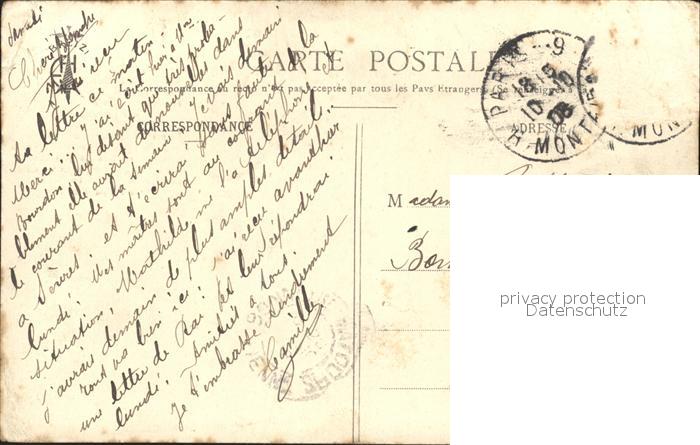 CARTE POSTALE
La Correspondance au recto n'est pas acceptée par tous les Pays Etrangers (Se renseigner à la
CORRESPONDANCE
ADRESSE
PARIS 9
18 15
10 10
08
R. MONT
R. MONT
samedi
Chère
J'ai reçu
ta lettre ce matin
Merci; j'ai écrit hier à Mme
Bourdon lui disant que très proba-
blement elle aurait de nouvelles dans
le courant de la semaine. Je vais demain
à Sèvres; et t'écrirai plus long de là
lundi. Mes maîtres sont au courant de la
situation, Mathilde me l'a téléphoné et
j'aurai demain de plus amples détails.
vas bien ici; j'ai reçu avant-hier
une lettre de et leur répondrai
lundi. Amitiés à tous.
Je t'embrasse tendrement
Camille
Madam
Bou
privacy protection
Datenschutz